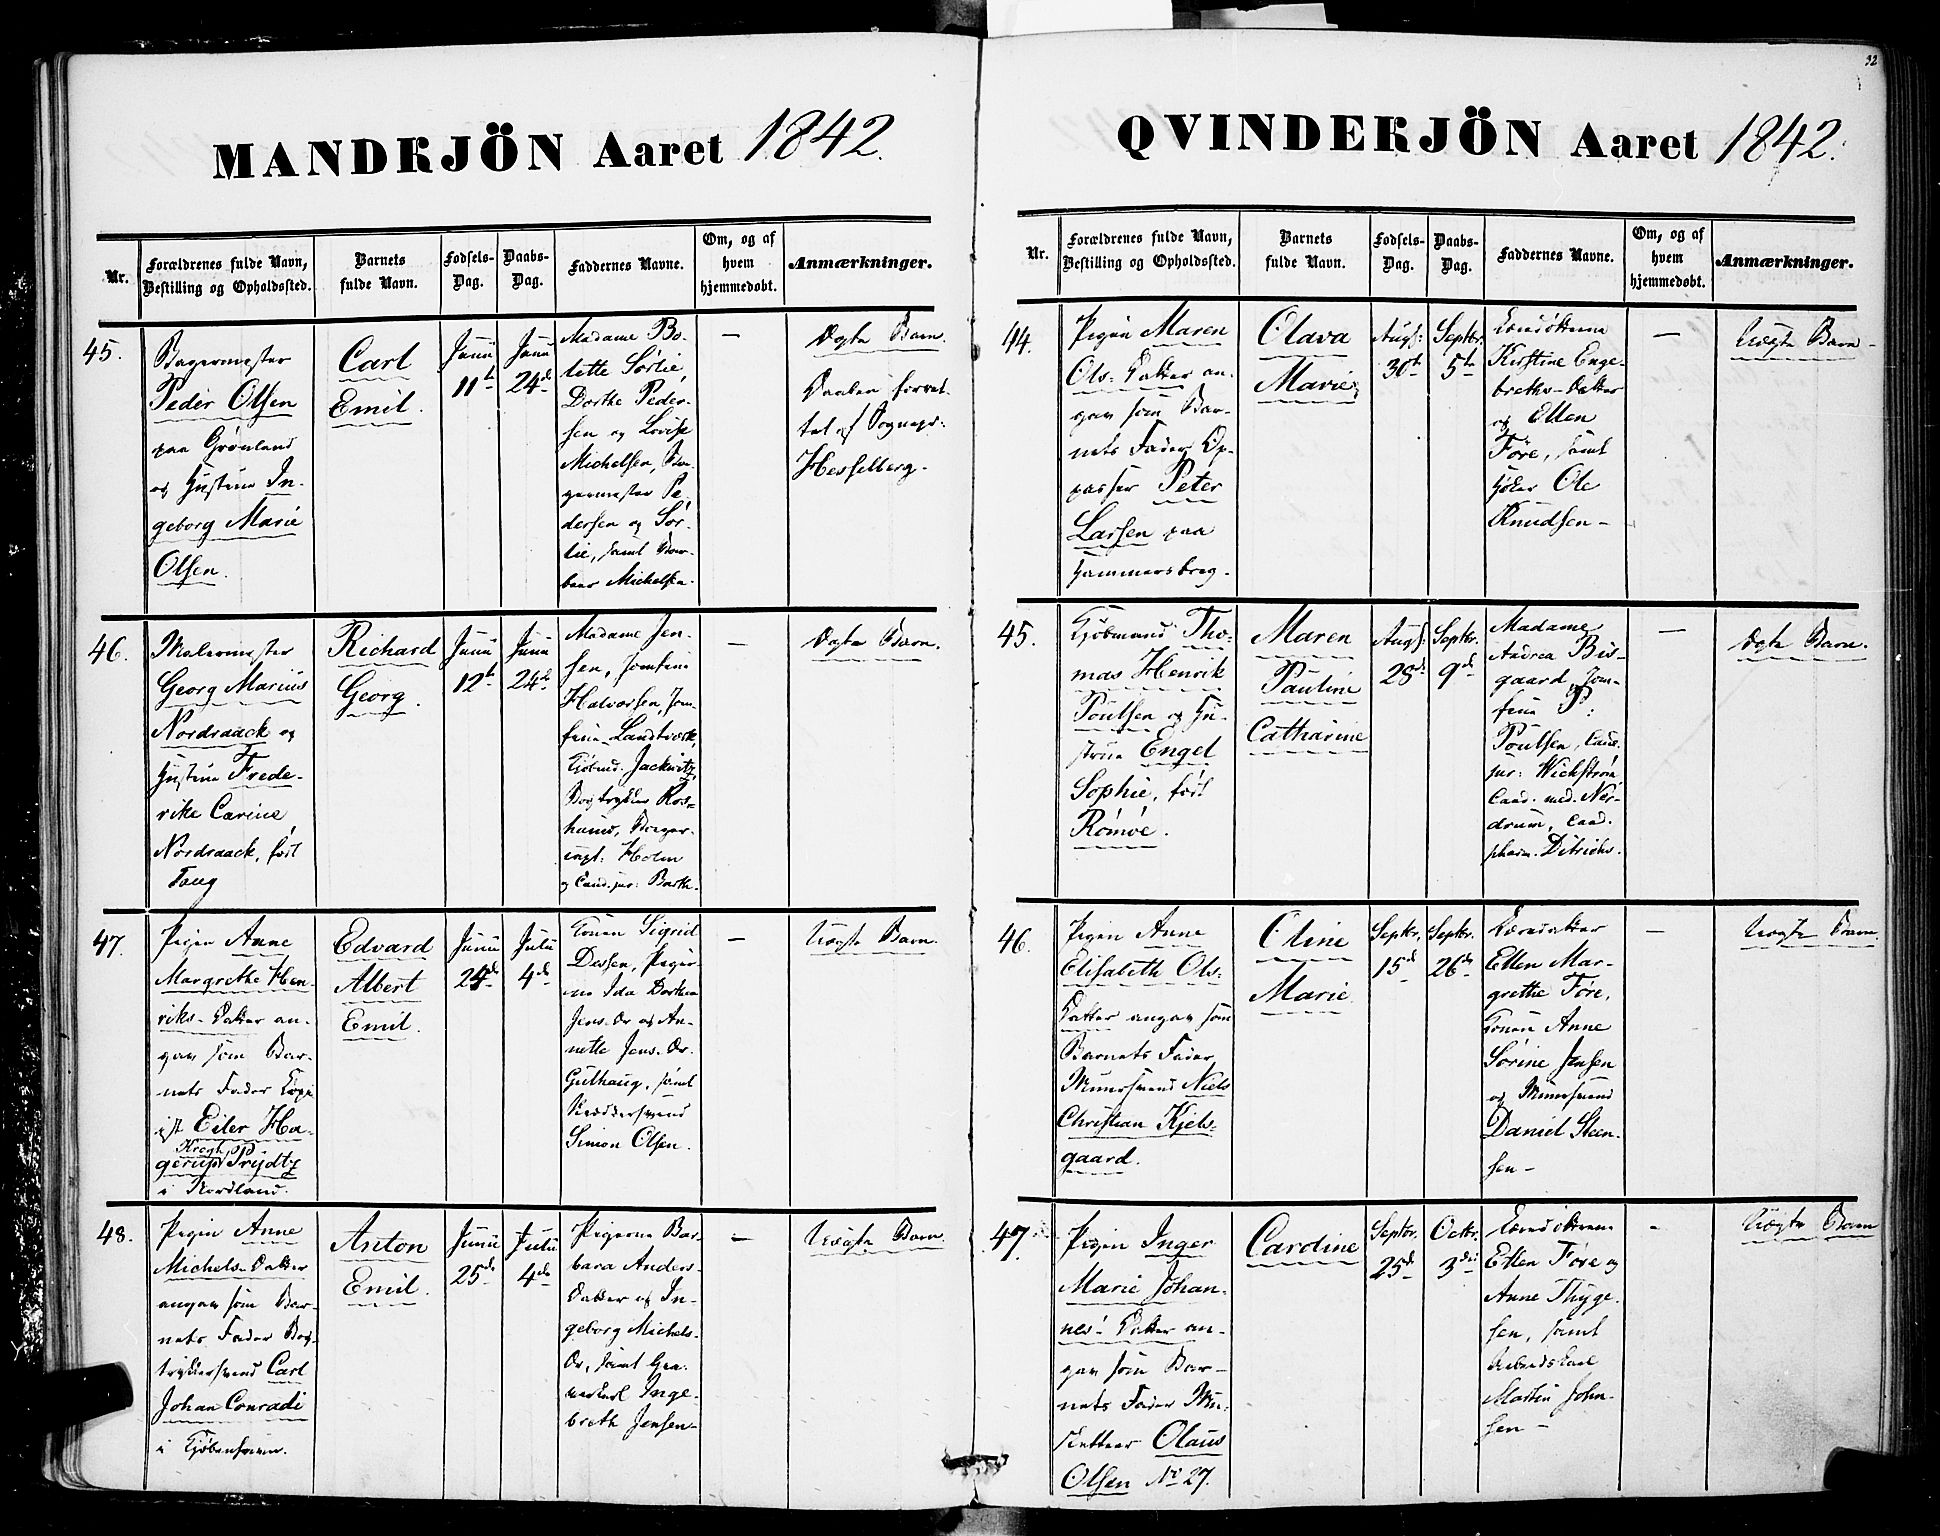 32
MANDKJÖN Aaret 1842.
Nr.
Forældrenes fulde Navn,
Bestilling og Opholdssted.
Barnets
fulde Navn.
Fødsels-
Dag.
Daabs-
Dag.
Faddernes Navne.
Om, og af
hvem
hjemmedøbt.
Anmærkninger.
45.
Bagermester
Peder Olsen
paa Grønland
og Hustrue In-
geborg Marie
Olsen.
Carl
Emil.
Juni
11te
Juni
24de
Madame Bo-
lette Sørlie,
Dorthe Peder-
sen og Lovise
Michelsen, Ba-
germester Pe-
dersen og Sør-
lie, samt Bar-
beer Michelsen.
—
Ægte Barn.
Daaben forret-
tet af Sognepr:
Hesselberg.
46.
Malermester
Georg Marius
Nordraack og
Hustrue Frede-
rike Carine
Nordraack, født
Tang
Richard
Georg.
Juni
12te
Juni
24de
Madame Jen-
sen, Jomfrue
Halvorsen, Jom-
frue Landtværk,
Kjøbmd. Jackwitz,
Bogtrykker Ros-
hauw, Borger-
capt: Holm
og Cand. jur: Barth.
—
Ægte Barn.
47.
Pigen Anne
Margrethe Hen-
riks-Datter an-
gav som Bar-
nets Fader Copi-
ist Eiler Ha-
Krogh
gerup Prydtz
i Nordland.
Edvard
Albert
Emil.
Juni
24de
Juli
4de
Konen Sigrid
Dessen, Piger-
ne Ida Dorthea
Jens-Dr og An-
nette Jens-Dr.
Gulhaug, samt
Skræddersvend
Simon Olsen.
—
Uægte Barn.
48.
Pigen Anne
Michels-Datter
angav som Bar-
nets Fader Bog-
trykkersvend Carl
Johan Conradi
i Kjøbenhavn.
Anton
Emil.
Juni
25de
Juli
4de
Pigerne Bar-
bara Anders-
Datter og In-
geborg Michels-
Dr, samt
Inge-
breth Jensen-
—
Uægte Barn.
QVINDEKJÖN Aaret 1842.
Nr.
Forældrenes fulde Navn,
Bestilling og Opholdssted.
Barnets
fulde Navn.
Fødsels-
Dag.
Daabs-
Dag.
Faddernes Navne.
Om, og af
hvem
hjemmedøbt.
Anmærkninger.
44.
Pigen Maren
Ols-Datter an-
gav som Bar-
nets Fader Op-
passer Peter
Larsen paa
Hammersborg.
Olava
Marie
Augs:
30te
Septbr.
5te
Kirstine Enge-
breths-Datter
og Ellen
Føre, samt
Ole
Knudsen-
—
Uægte Barn-
45.
Kjøbmand Tho-
mas Henrik
Poulsen og Hu-
strue Engel
Sophie, født
Rømøe.
Maren
Pauline
Catharine
Augs:
28de
Septbr.
9de
Madame
Andrea Bis-
gaard, Jom-
frue P:
Poulsen, Cand.
jur: Wichstrøm,
Cand. med. Ner-
drum, Cand.
pharm. Ditrichs.
—
Ægte Barn.
46.
Pigen Anne
Elisabeth Ols-
Datter angav som
Barnets Fader
Muursvend Niels
Christian Kjels-
gaard.
Oline
Marie.
Septbr.
15de
Septbr.
26de
Ellen Mar-
grethe Føre,
Konen Anne
Sørine Jensen
og Muursvend
Daniel Steen-
sen-
—
Uægte Barn.
47.
Pigen Inger
Marie Johan-
nes-Datter an-
gav som Bar-
nets Fader Mu-
sketteer Olaus
Olsen No 27.
Cardine
Septbr.
25de
Octbr.
3die
Ellen Føre og
Anne Thyge-
sen, samt
Arbeidskarl
Martin John-
sen-
—
Uægte Barn